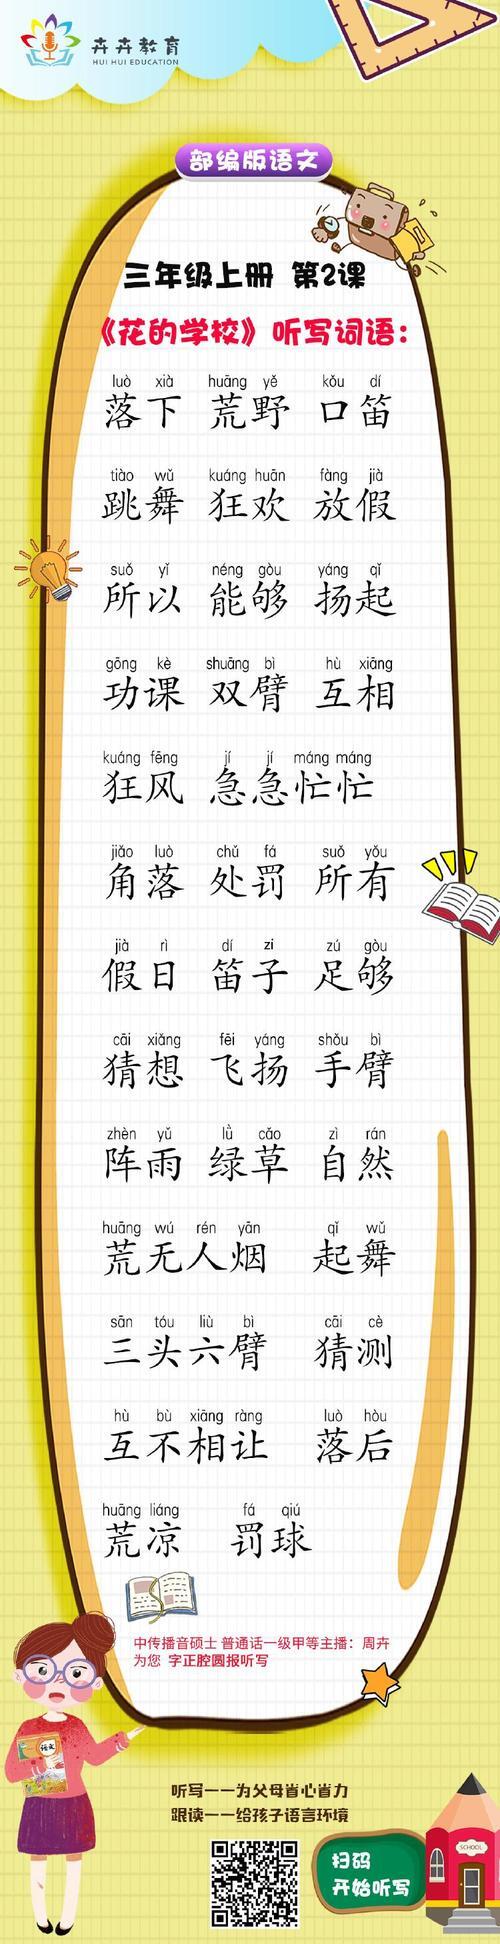 卉卉教育
HUI HUI EDUCATION
部编版语文
三年级上册 第2课
《花的学校》听写词语：
luò xià huāng yě kǒu dí
落下 荒野 口笛
tiào wǔ kuáng huān fàng jià
跳舞 狂欢 放假
suǒ yǐ néng gòu yáng qǐ
所以 能够 扬起
gōng kè shuāng bì hù xiāng
功课 双臂 互相
kuáng fēng jí jí máng máng
狂风 急急忙忙
jiǎo luò chǔ fá suǒ yǒu
角落 处罚 所有
jià rì dí zi zú gòu
假日 笛子 足够
cāi xiǎng fēi yáng shǒu bì
猜想 飞扬 手臂
zhèn yǔ lǜ cǎo zì rán
阵雨 绿草 自然
huāng wú rén yān qǐ wǔ
荒无人烟 起舞
sān tóu liù bì cāi cè
三头六臂 猜测
hù bù xiāng ràng luò hòu
互不相让 落后
huāng liáng fá qiú
荒凉 罚球
中传播音硕士 普通话一级甲等主播：周卉
为您 字正腔圆报听写
语文
听写——为父母省心省力
跟读——给孩子语言环境
扫码
开始听写
SCHOOL